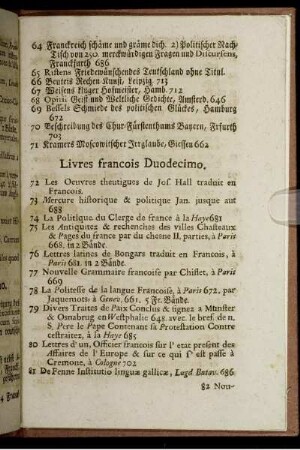 64 Franckreich schäme und gräme dich. 2) Politischer Nach-
Tisch von 250. merckwürdigen Fragen und Discursens,
Franckfurth 686
65 Ristens Friedewünschendes Teutschland ohne Titul.
66 Beuteis Rechen Kunst, Leipzig 713
67 Weisens kluger Hofmeister, Hamb. 712
68 Opitii Geist und Weltliche Gedichte, Amsterd. 646
69 Bessels Schmiede des politischen Glückes, Hamburg
672
70 Beschreibung des Chur-Fürstenthums Bayern, Erfurth
703
71 Kramers Moscowitscher Irrglaube, Giessen 662
Livres francois Duodecimo.
72 Les Oeuvres theutigues de Jos. Hall traduit en
Francois.
73 Mercure historique & politique Jan. jusque aut
688
74 La Politique du Clerge de france à la Haye 681
75 Les Antiquites & recherches des villes Chasteaux
& Pages du france par du chesne II. parties, à Paris
668. in 2 Bände.
76 Lettres latines de Bongars traduit en Francois, à
Paris 681. in 2 Bände.
77 Nouvelle Grammaire francoise par Chiflet, à Paris
669
78 La Politesse de la langue Francoise, à Paris 672. par
Jaquemott à Genev. 661. 5 Fr. Bände.
79 Divers Traites de Paix Conclus & signez a Munster
& Osnabrug en Westphalie 648. avec le bref. de n.
S. Pere le Pape Contenant sa Protestation Contre
cestraitez, à la Haye 685
80 Lettres d'un Officier francois sur l'etat present des
Affaires de l'Europe & sur ce qui s'est passe à
Cremone, à Cologne 702
81 De Fenne Institutio linguæ gallicæ, Lugd. Batav. 686.
82 Nou-